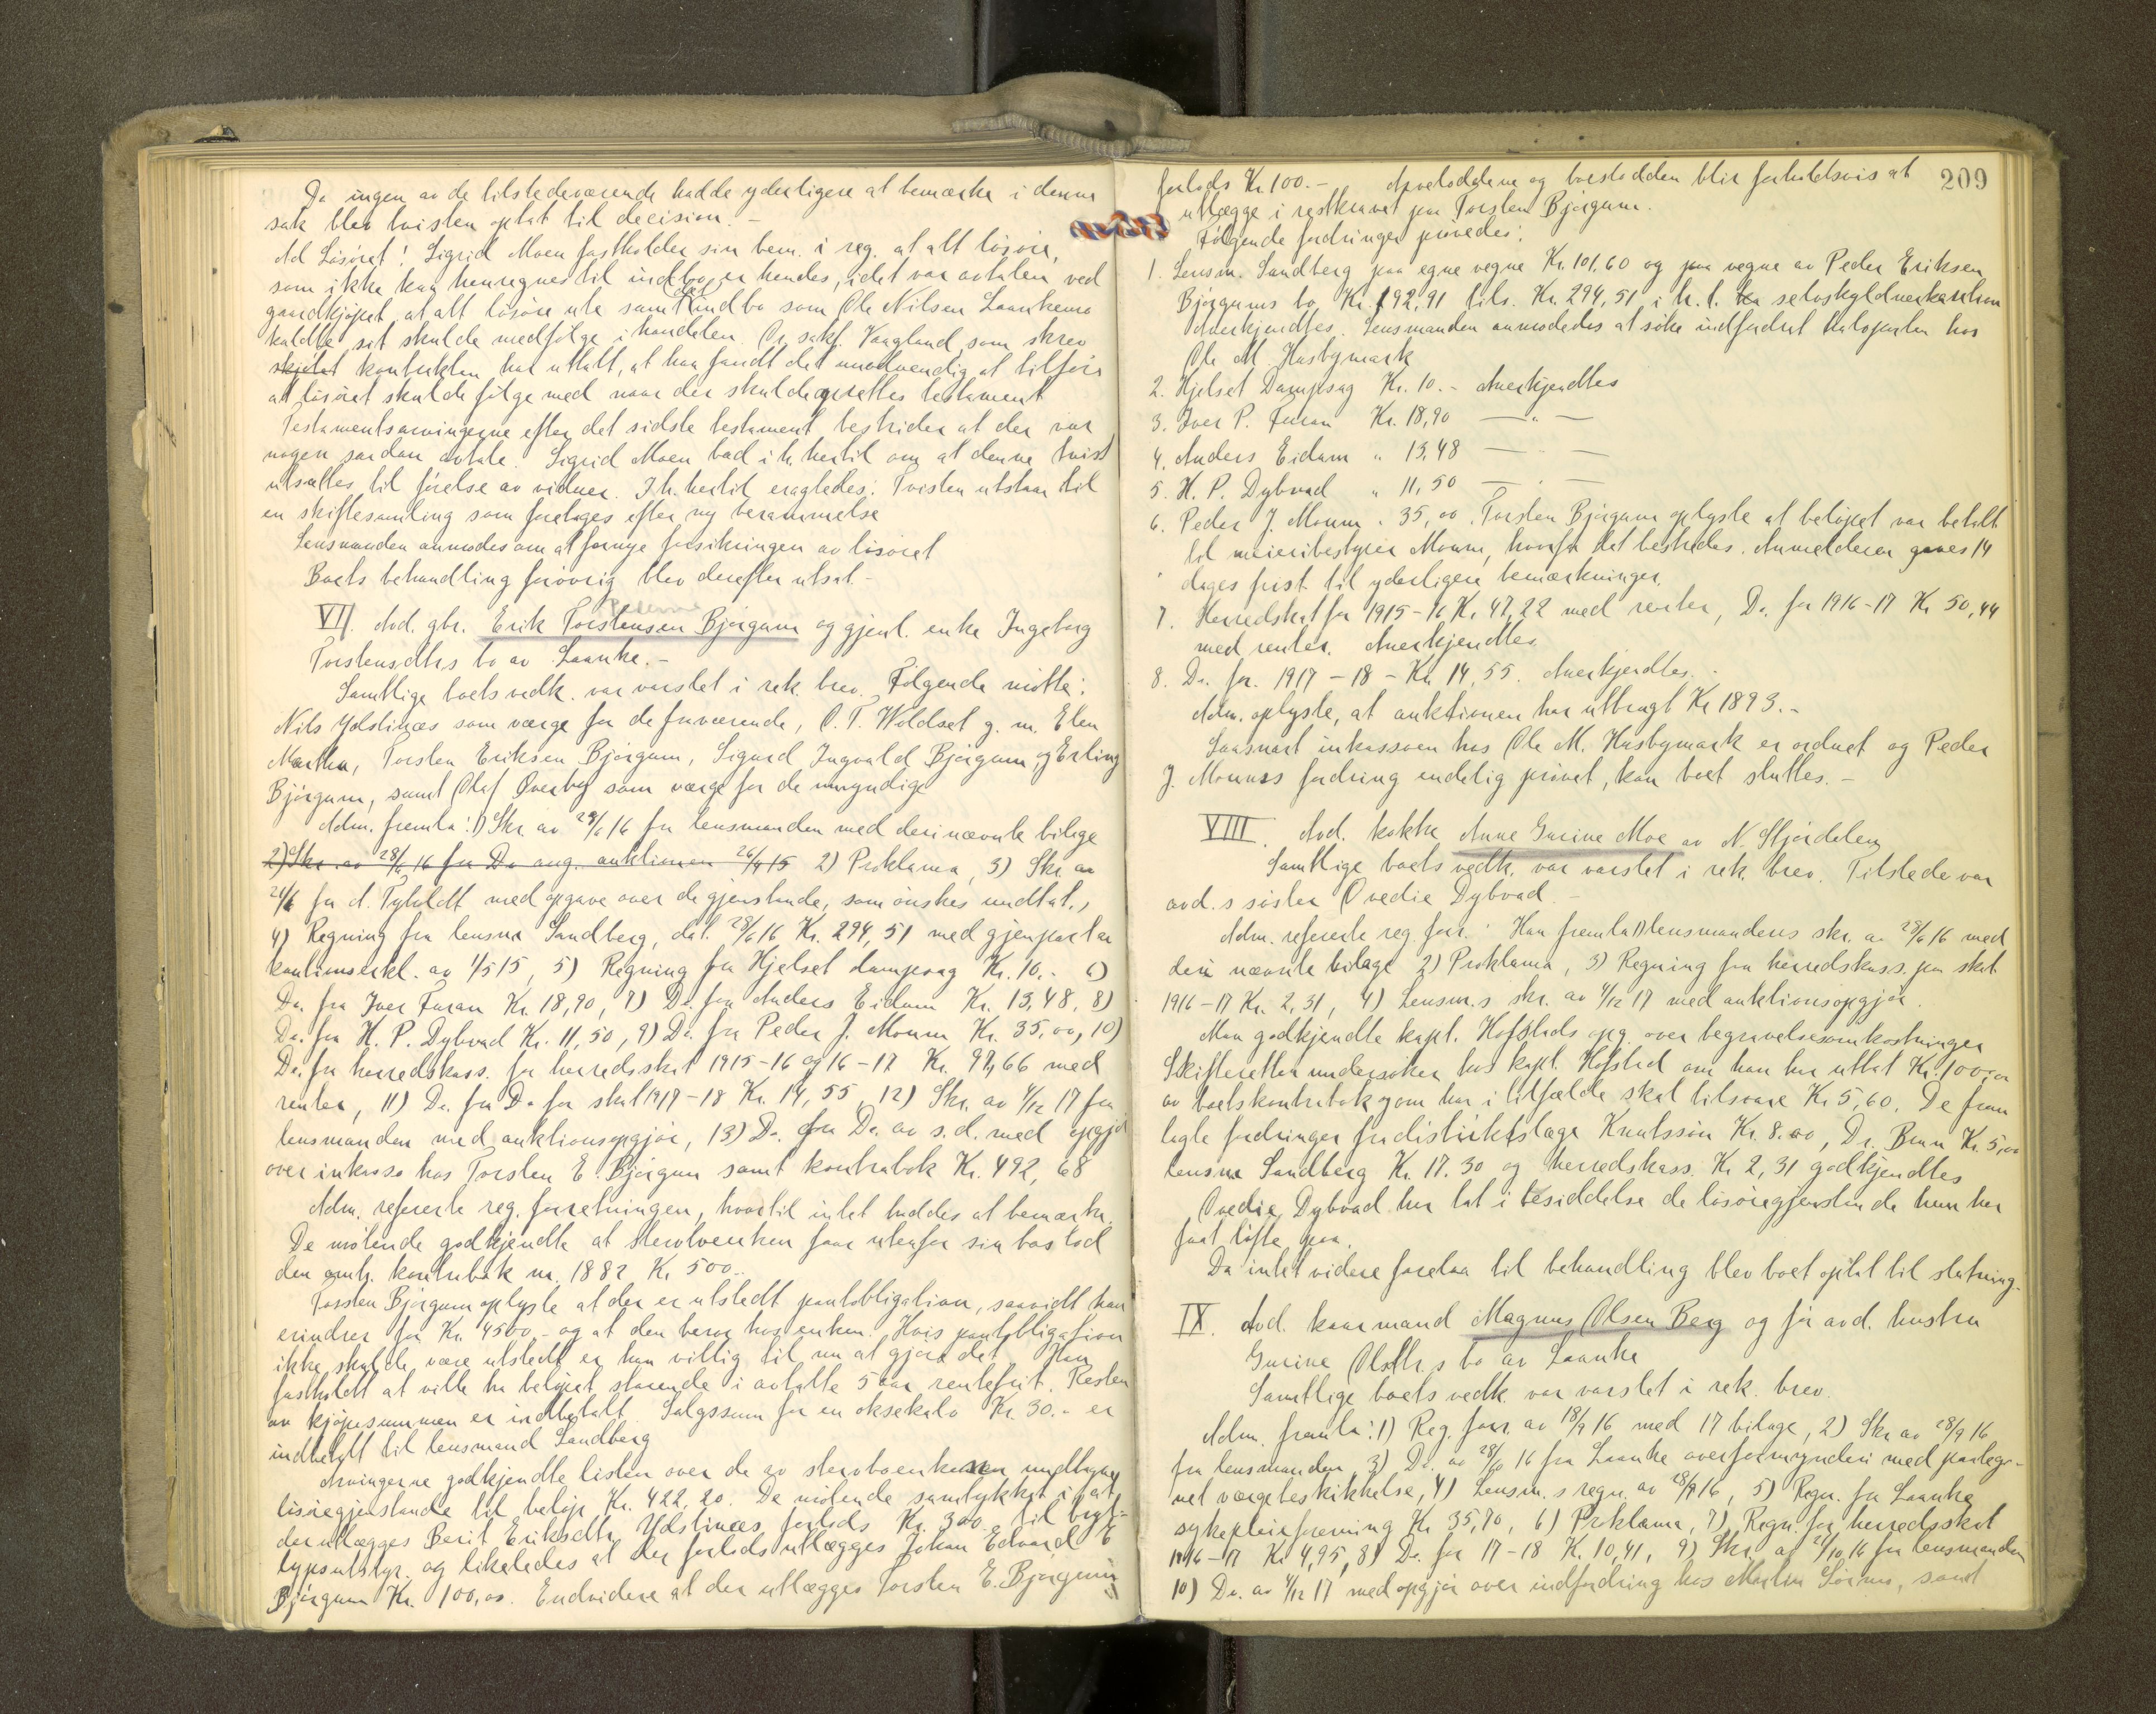 Da ingen av de tilstedeværende hadde yderligere at bemærke i denne
sak blev tvisten optat til decision. -
Ad Løsøret! Sigrid Moen fastholder sin bem. i reg. at alt løsøre,
som ikke kan henregnes til indbo er hendes, idet var avtalen ved
gaardkjøpet, at alt løsøre ute samt det indbo som Ole Nilsen Laanke
kaldte sit skulde medfølge i handelen. O. sakf. Vaagland, som skrev
skjøtet kontrakten har uttalt, at han fandt det unødvendig at tilføie
at løsøret skulde følge med naar der skulde oprettes testament
Testamentsarvingerne efter det sidste testament bestrider at der var
nogen saadan avtale. Sigrid Moen bad i h. hertil om at denne tvist
utsættes til førelse av vidner. I h. hertil eragtedes: Tvisten utstaar til
en skiftesamling som foretages efter ny berammelse
Lensmanden anmodes om at fornye forsikringen av løsøret
Boets behandling forøvrig blev derefter utsat. -
VII. Avd. gbr. Erik Torstensen Bjørgum og gjenl. enke Ingeborg
Torstensdtrs bo av Laanke. -
Samtlige boets vedk. var varslet i rek. brev. Følgende møtte:
Nils Ydstinæs som værge for de fraværende, O. T. Woldset g. m. Elen
Martha, Torsten Eriksen Bjørgum, Sigurd Ingvald Bjørgum, og Erling
Bjørgum, samt Olaf Øverby som værge for de umyndige
Adm. fremla: 1) Skr. av 28/6 16 fra lensmanden med deri nævnte bilage
2) Skr. av 28/6 16 fra Do ang. auktionen 26/4 15 2) Proklama, 3) Skr. av
24/6 fra A. Tyholdt med opgave over de gjenstande, som ønskes undtat,
4) Regning fra lensm Sandberg, dat. 28/6 16 Kr. 294,51 med gjenpart av
kautionserkl. av 1/5 15, 5) Regning fra Hjelset dampsag Kr. 10.- 6)
Do. fra Iver Furan Kr. 18,90, 7) Do. fra Anders Eidum Kr. 13,48, 8)
Do. fra H. P. Dybvad Kr. 11,50, 9) Do. fra Peder J. Moum Kr. 35,00, 10)
Do. fra herredskass. for herredsskat 1915-16 og 16-17 Kr. 97,66 med
renter, 11) Do. fra Do for skat 1917-18 Kr. 14,55, 12) Skr. av 4/12 17 fra
lensmanden med auktionsopgjør, 13) Do. fra Do. av s.d. med opgjør
over inkasso hos Torsten E. Bjørgum samt kontrabok Kr. 492,68
Adm. refererte reg. forretningen, hvortil intet haddes at bemærke.
De møtende godkjendte at stervboenken faar utenfor sin boslod
den omh. kontrabok nr. 1882 Kr 500..
Torsten Bjørgum oplyste at der er utstedt pantobligation, saavidt han
erindrer for Kr. 4500.- og at den beror hos enken. Hvis pantobligation
ikke skulde være utstedt er han villig til nu at gjøre det. Han
fastholdt at ville ha beløpet staaende i avtalte 5 aar rentefrit. Resten
av kjøpesummen er indbetalt. Salgssum for en oksekalv Kr. 30.- er
indbetalt til lensmand Sandberg
Arvingerne godkjendte listen over de av stervboenken undtagne
løsøregjenstande til beløp Kr. 422,20. De møtende samtykket i at
der utlægges Berit Eriksdtr Ydstinæs forlods Kr. 300.- til bryl-
lupsutstyr. og likeledes at der forlods utlægges Johan Edvard E
Bjørgum Kr. 100,00. Endvidere at der utlægges Torsten E. Bjørgum
209
forlods Kr. 100.- Arvelodderne og boeslodden blir forholdsvis at
utlægge i restkravet paa Torsten Bjørgum.
Følgende fordringer prøvedes:
1. Lensm. Sandberg paa egne vegne Kr. 101.60 og paa vegne av Peder Eriksen
Bjørgums bo Kr. 192,91 tils. Kr. 294,51 i h. t. selvskyldnerkaution
Anerkjendtes. Lensmanden anmodedes at søke indfordret halvparten hos
Ole M. Husbymark
2. Hjelset Dampsag Kr. 10.- Anerkjendtes
3. Iver P. Furan Kr. 18,90 — " —
4. Anders Eidum " 13,48 — " —
5. H. P. Dybvad " 11,50 — " —
6. Peder J. Moum " 35,00. Torsten Bjørgum oplyste at beløpet var betalt
til meieribestyrer Moum, hvorfor det bestrides. Anmelderen gaves 14
dages frist til yderligere bemærkninger.
7. Herredskat for 1915-16 Kr. 47,22 med renter, Do. for 1916-17 Kr 50,44
med renter. Anerkjendtes.
8. Do. for. 1917-18 - Kr. 14,55. Anerkjendtes. -
Adm. oplyste, at auktionen har utbragt Kr 1893.-
Saasnart inkassoen hos Ole M. Husbymark er ordnet og Peder
J. Moums fordring endelig prøvet, kan boet sluttes. -
VIII. Avd. kokke Anne Gurine Moe av N. Stjørdalen
Samtlige boets vedk. var varslet i rek. brev. Tilstede var
avd.s søster Ovedie Dybvad -
Adm. refererte reg. forr. Han fremla 1) lensmandens skr. av 28/6 16 med
deri nævnte bilage 2) Proklama, 3) Regning fra herredskass. paa skat
1916-17 Kr. 2,31, 4) Lensm.s skr. av 4/12 17 med auktionsopgjør.
Man godkjendte kapt. Hofstads opg. over begravelsesomkostninger
Skifteretten undersøker hos kapt. Hofstad om han har uttat Kr. 100,00
av boets kontrabok og om han i tilfælde skal tilsvare Kr 5,60. De frem
lagte fordringer fra distriktslæge Knutssøn Kr. 8.00, Dr. Brun Kr. 5,00
lensm Sandberg Kr. 17.30 og herredskass. Kr 2,31 godkjendtes
Ovedie Dybvad har tat i besiddelse de løsøregjenstande hun har
faat løfte paa.
Da intet videre forelaa til behandling blev boet optat til slutning.
IX. Avd. kaarmand Magnus Olsen Berg og før avd. hustru
Gurine Olsdtr.s bo av Laanke
Samtlige boets vedk. var varslet i rek. brev.
Adm. fremla: 1) Reg. forr. av 18/9 16 med 17 bilage, 2) Skr. av 28/9 16
fra lensmanden 3) Do. av 28/10 16 fra Laanke overformynderi med paateg-
net værgebeskikkelse, 4) Lensm.s regn. av 28/9 16, 5) Regn. fra Laanke
sykepleieforening Kr 35,70, 6) Proklama, 7) Regn. for herredsskat
1916-17 Kr. 4,95, 8) Do. for 17-18 Kr. 10,41, 9) Skr. av 24/10 16 fra lensmanden
10) Do. av 4/12 17 med opgjør over indfordring hos Martin Sørmo, samt